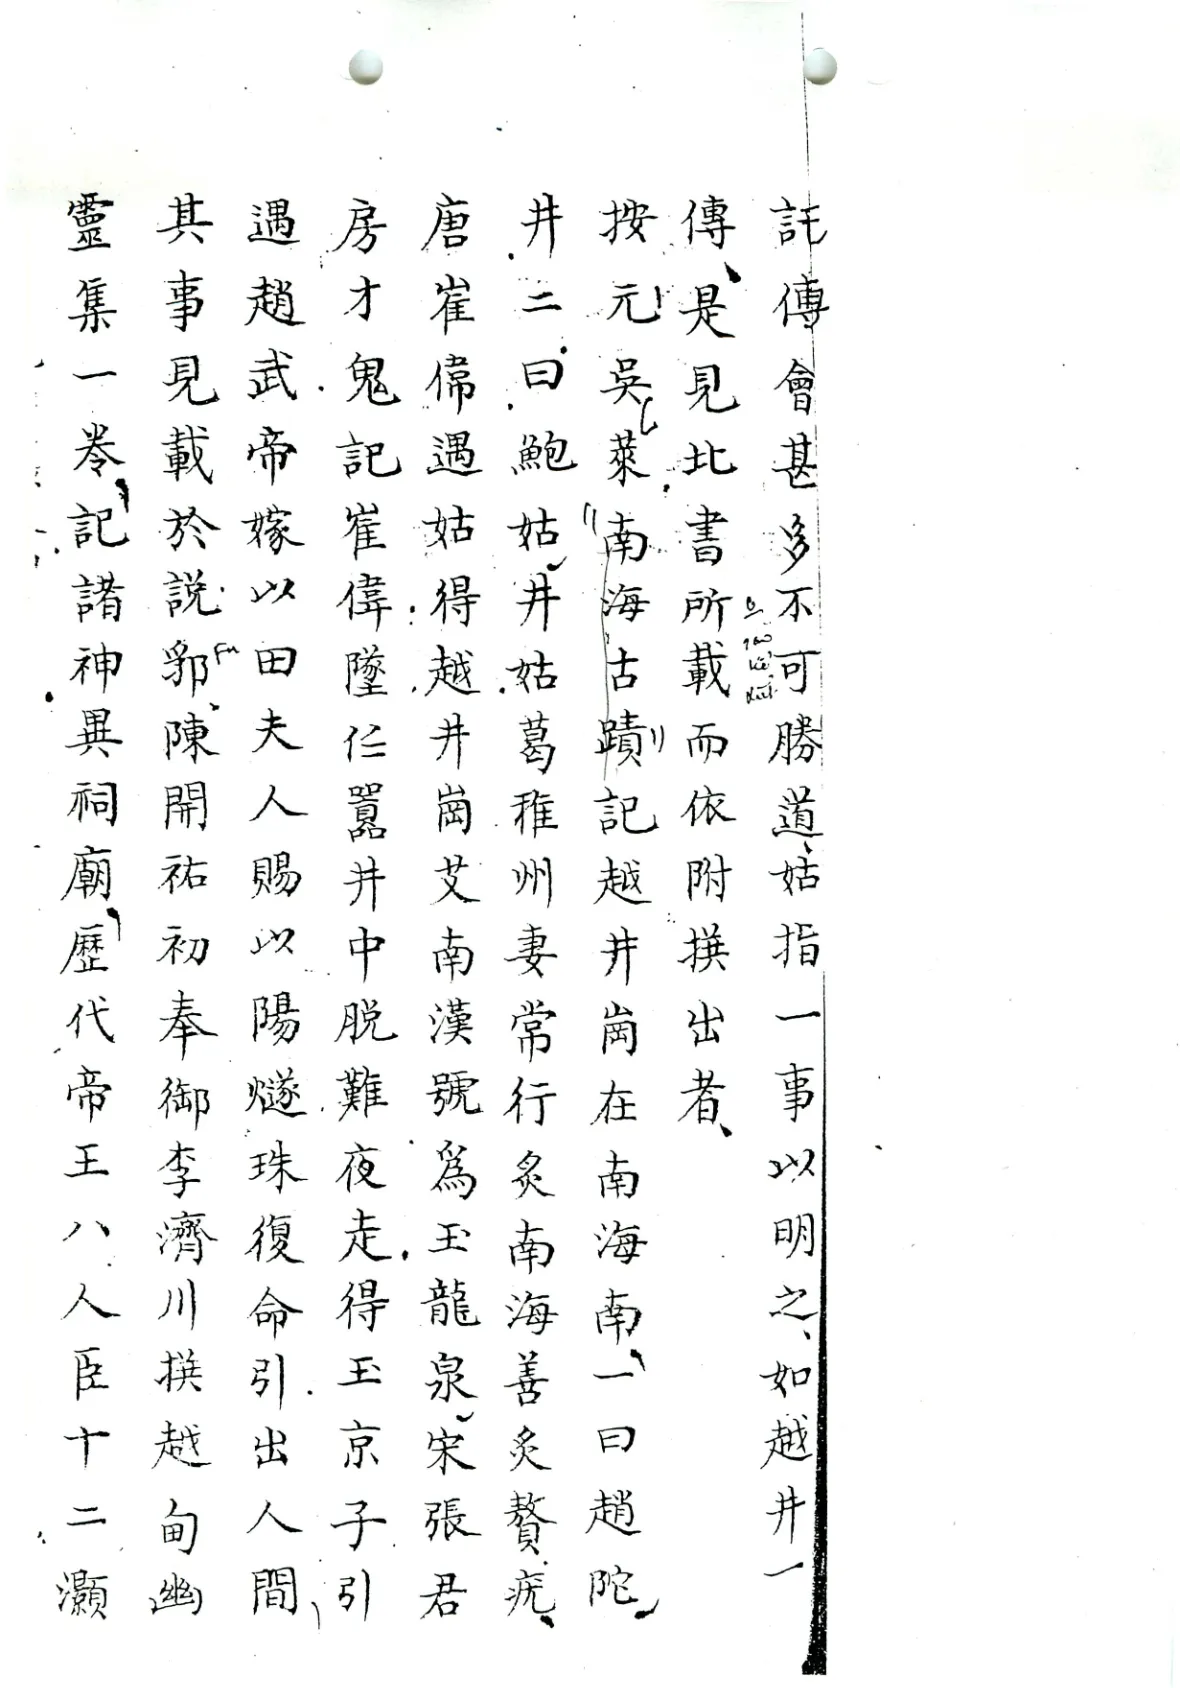 託傳會甚多不可勝道姑指一事以明之如越井一
傳是見北書所載而依附撰出者
按元吳萊南海古蹟記越井崗在南海南一曰趙陀
井二曰鮑姑井姑葛稚州妻常行炙南海善炙贅疣
唐崔偉遇姑得越井崗艾南漢號爲玉龍泉宋張君
房才鬼記崔偉墜仁囂井中脱難夜走得玉京子引
遇趙武帝嫁以田夫人賜以陽燧珠復命引出人間
其事見載於説郛陳開祐初奉御李濟川撰越甸幽
靈集一卷記諸神異祠廟歷代帝王八人臣十二灝